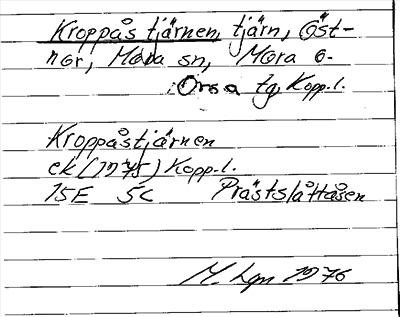 Kroppåstjärnen, tjärn, Öst-
nor, Mora sn, Mora o.
Orsa tg, Kopp.l.
Kroppåstjärnen
ek (1975) Kopp.l.
15E 5c Prästslåttåsen
M. Lgn 1976